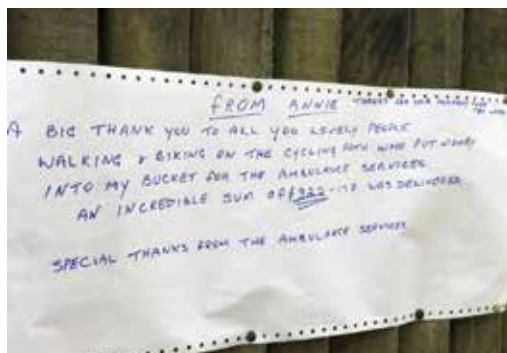 FROM ANNIE
A BIG THANK YOU TO ALL YOU LOVELY PEOPLE
WALKING & BIKING ON THE CYCLING PATH WHO PUT MONEY
INTO MY BUCKET FOR THE AMBULANCE SERVICES
AN INCREDIBLE SUM OF £322-17 WAS DELIVERED
SPECIAL THANKS FROM THE AMBULANCE SERVICES